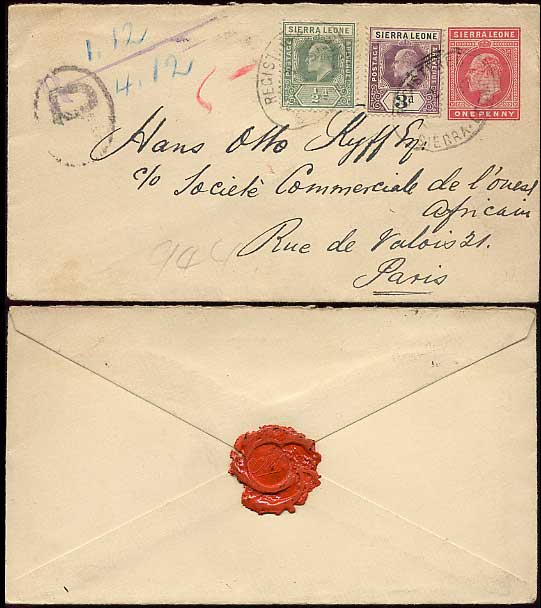 1.12
4.12
R
SIERRA LEONE
POSTAGE
½d
SIERRA LEONE
POSTAGE
3d
SIERRA LEONE
ONE PENNY
REGIST
SIERRA
Hans Otto Ryff Esq.
c/o Societé Commerciale de l'ouest
africain
Rue de Valois 21.
Paris